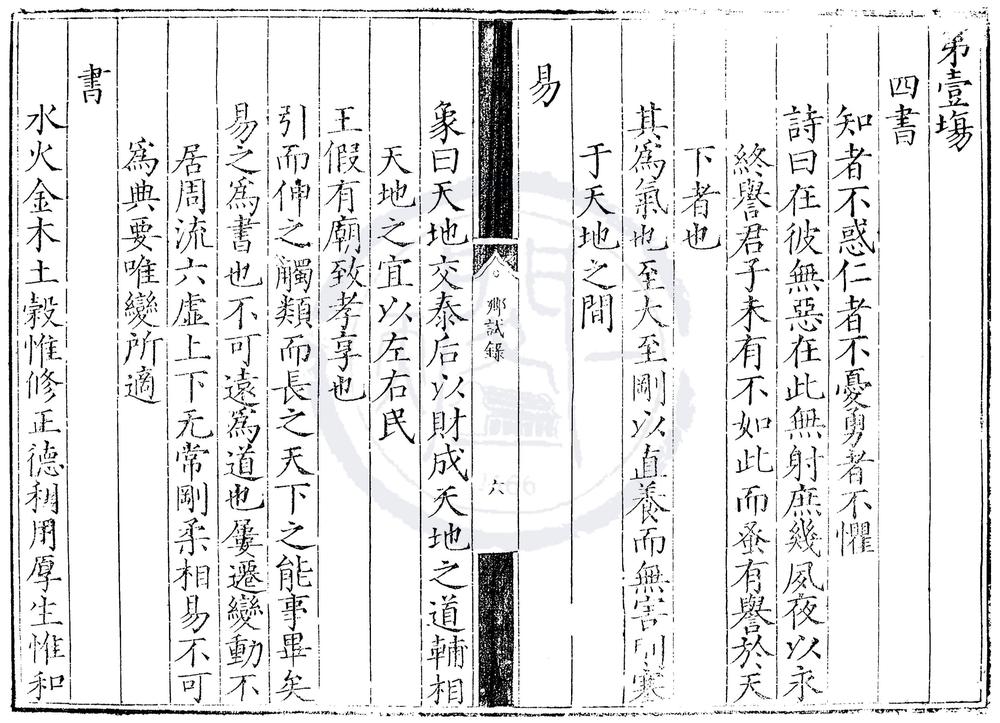 弟壹塲
四書
知者不惑仁者不憂勇者不懼
詩曰在彼無惡在此無射庶幾夙夜以永
終譽君子未有不如此而蚤有譽於天
下者也
其爲氣也至大至剛以直養而無害則塞
于天地之間
易
鄉試錄
六
象曰天地交泰后以財成天地之道輔相
天地之宜以左右民
王假有廟致孝享也
引而伸之觸類而長之天下之能事畢矣
易之爲書也不可遠爲道也屢遷變動不
居周流六虛上下无常剛柔相易不可
爲典要唯變所適
書
水火金木土穀惟修正德利用厚生惟和